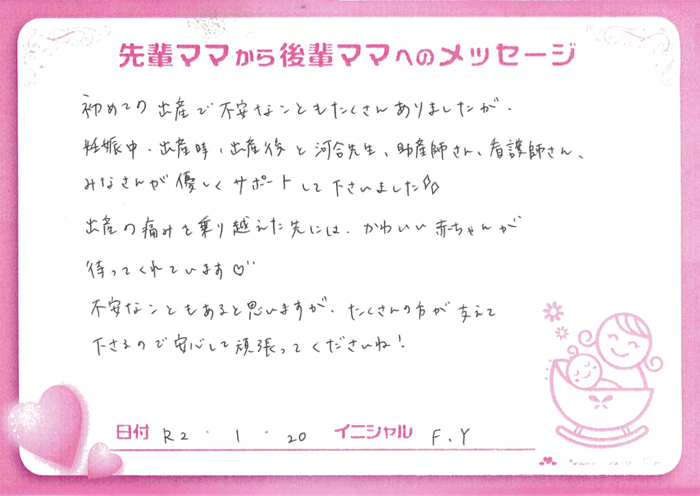 先輩ママから後輩ママへのメッセージ
初めての出産で不安なこともたくさんありましたが、
妊娠中・出産時・出産後と河合先生、助産師さん、看護師さん、
みなさんが優しくサポートして下さいました
出産の痛みを乗り越えた先には、かわいい赤ちゃんが
待ってくれています♡
不安なこともあると思いますが、たくさんの方が支えて
下さるので安心して頑張ってくださいね!
日付 R2・1・20 イニシャル F.Y